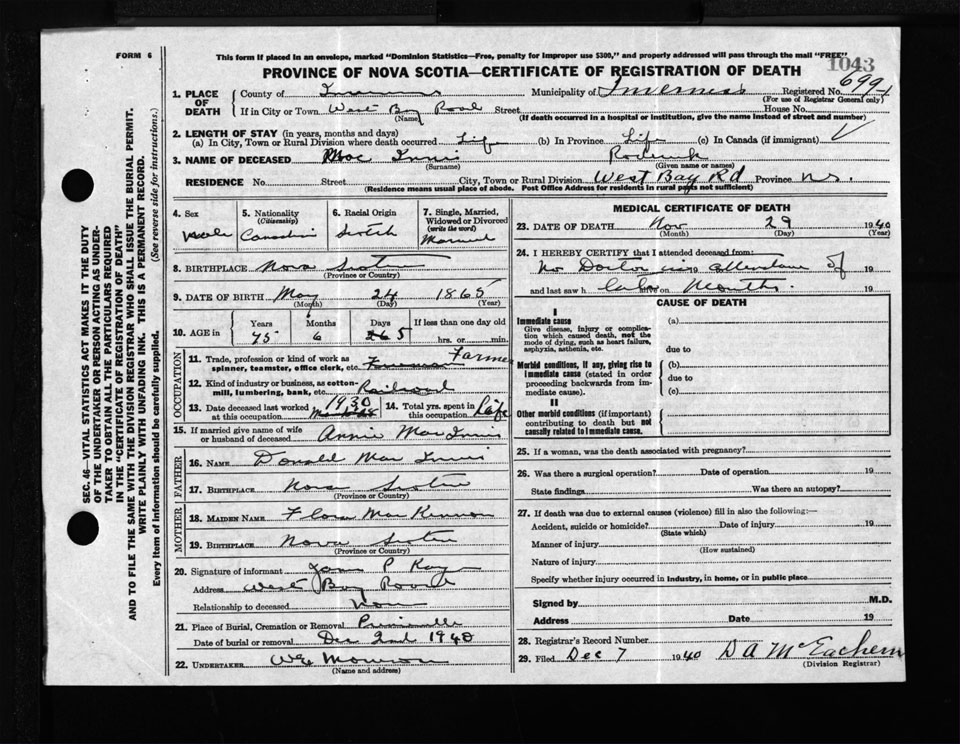 FORM 6
This form if placed in an envelope, marked "Dominion Statistics—Free, penalty for improper use $300," and properly addressed will pass through the mail "FREE"
1043
PROVINCE OF NOVA SCOTIA—CERTIFICATE OF REGISTRATION OF DEATH
1. PLACE OF DEATH
County of Inverness Municipality of Inverness Registered No. 6994
(For use of Registrar General only)
If in City or Town West Bay Road Street House No.
(Name) (If death occurred in a hospital or institution, give the name instead of street and number)
2. LENGTH OF STAY (in years, months and days)
(a) In City, Town or Rural Division where death occurred Life (b) In Province Life (c) In Canada (if immigrant)
3. NAME OF DECEASED Mac Innis Roderick
(Surname) (Given name or names)
RESIDENCE No. Street City, Town or Rural Division West Bay Rd Province N.S.
(Residence means usual place of abode. Post Office Address for residents in rural parts not sufficient)
4. Sex Male
5. Nationality (Citizenship) Canadian
6. Racial Origin Scotch
7. Single, Married, Widowed or Divorced (write the word) Married
8. BIRTHPLACE Nova Scotia
(Province or Country)
9. DATE OF BIRTH May 24 1865
(Month) (Day) (Year)
10. AGE in Years Months Days If less than one day old
75 6 5 hrs. or min.
OCCUPATION
11. Trade, profession or kind of work as spinner, teamster, office clerk, etc. Farmer
12. Kind of industry or business, as cotton-mill, lumbering, bank, etc. Railroad
13. Date deceased last worked at this occupation 1930
14. Total yrs. spent in this occupation Life
15. If married give name of wife or husband of deceased Annie Mac Innis
FATHER
16. NAME Donald Mac Innis
17. BIRTHPLACE Nova Scotia
(Province or Country)
MOTHER
18. MAIDEN NAME Flora Mac Kinnon
19. BIRTHPLACE Nova Scotia
(Province or Country)
20. Signature of informant P
Address West Bay Road
Relationship to deceased No
21. Place of Burial, Cremation or Removal
Date of burial or removal Dec 2nd 1940
22. UNDERTAKER
(Name and address)
MEDICAL CERTIFICATE OF DEATH
23. DATE OF DEATH Nov 29 1940
(Month) (Day) (Year)
24. I HEREBY CERTIFY that I attended deceased from:
No Doctor in attendance of 19
and last saw h alive on Months. 19
CAUSE OF DEATH
I
Immediate cause
Give disease, injury or complication which caused death, not the mode of dying, such as heart failure, asphyxia, asthenia, etc.
(a)
due to
Morbid conditions, if any, giving rise to immediate cause (stated in order proceeding backwards from immediate cause).
(b)
due to
(c)
II
Other morbid conditions (if important) contributing to death but not causally related to immediate cause.
25. If a woman, was the death associated with pregnancy?
26. Was there a surgical operation? Date of operation 19
State findings Was there an autopsy?
27. If death was due to external causes (violence) fill in also the following:—
Accident, suicide or homicide? Date of injury 19
(State which)
Manner of injury
(How sustained)
Nature of injury
Specify whether injury occurred in industry, in home, or in public place
Signed by M.D.
Address Date 19
28. Registrar's Record Number
29. Filed Dec 7 1940 D A McEachern
(Division Registrar)
SEC. 46—VITAL STATISTICS ACT MAKES IT THE DUTY
OF THE UNDERTAKER OR PERSON ACTING AS UNDER-
TAKER TO OBTAIN ALL THE PARTICULARS REQUIRED
IN THE "CERTIFICATE OF REGISTRATION OF DEATH"
AND TO FILE THE SAME WITH THE DIVISION REGISTRAR WHO SHALL ISSUE THE BURIAL PERMIT.
WRITE PLAINLY WITH UNFADING INK. THIS IS A PERMANENT RECORD.
Every item of information should be carefully supplied. (See reverse side for instructions.)